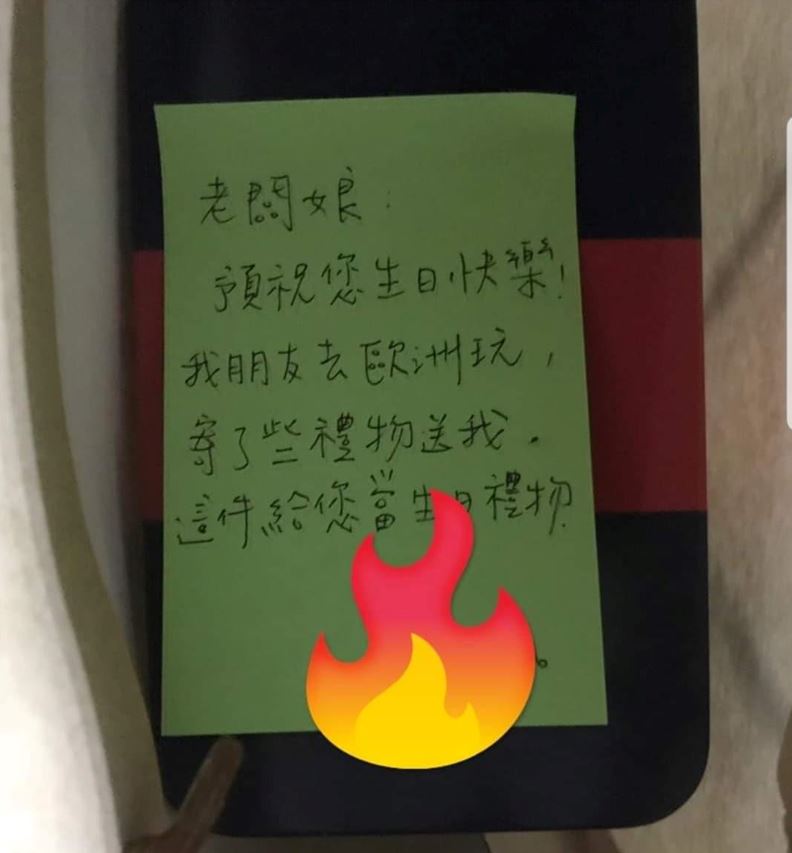 老闆娘：
預祝您生日快樂！
我朋友去歐洲玩，
寄了些禮物送我。
這件給您當生日禮物